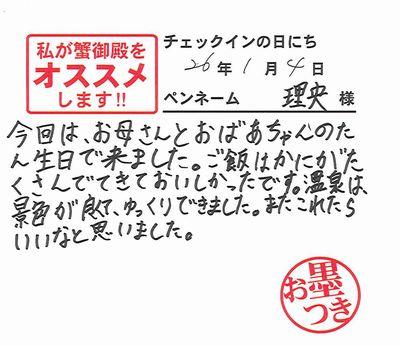 私が蟹御殿を
オススメ
します!!
チェックインの日にち
26年1月4日
ペンネーム 理央 様
今回は、お母さんとおばあちゃんのた
ん生日で来ました。ご飯はかにがた
くさんでてきておいしかったです。温泉は、
景色が良くて、ゆっくりできました。またこれたら
いいなと思いました。
お墨つき